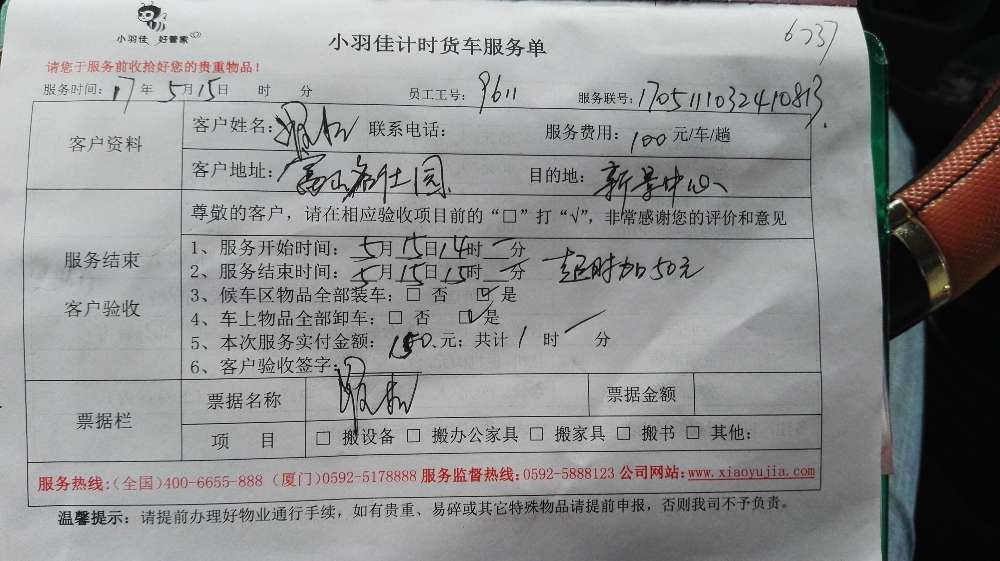 小羽佳 好管家
小羽佳计时货车服务单
6237
请您于服务前收拾好您的贵重物品！
服务时间：17年5月15日 时 分 员工工号：9611 服务联号：1705111032410813
客户资料
客户姓名： 联系电话： 服务费用：100元/车/趟
客户地址：富山名仕园 目的地：新景中心
服务结束
客户验收
尊敬的客户，请在相应验收项目前的“□”打“√”，非常感谢您的评价和意见
1、服务开始时间：5月15日14时 分
2、服务结束时间：5月15日15时 分 超时加50元
3、候车区物品全部装车：□ 否 ☑ 是
4、车上物品全部卸车：□ 否 ☑ 是
5、本次服务实付金额：150元；共计1时 分
6、客户验收签字：
票据栏
票据名称 票据金额
项 目 □ 搬设备 □ 搬办公家具 □ 搬家具 □ 搬书 □ 其他：
服务热线：（全国）400-6655-888（厦门）0592-5178888 服务监督热线：0592-5888123 公司网站：www.xiaoyujia.com
温馨提示：请提前办理好物业通行手续，如有贵重、易碎或其它特殊物品请提前申报，否则我司不予负责。